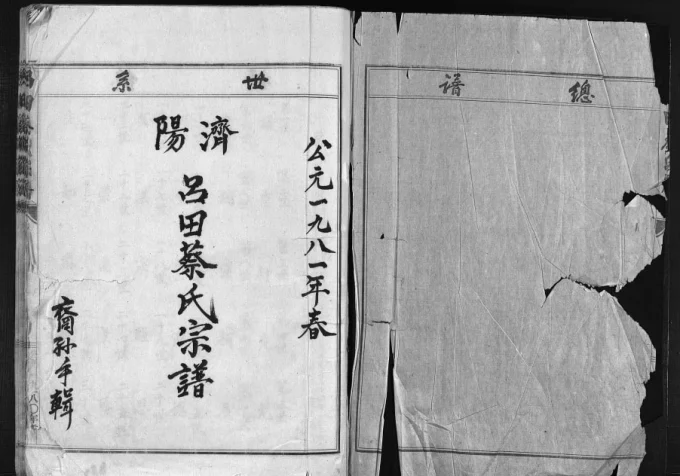 總譜
世系
公元一九八一年春
濟陽
呂田蔡氏宗譜
裔孙手輯